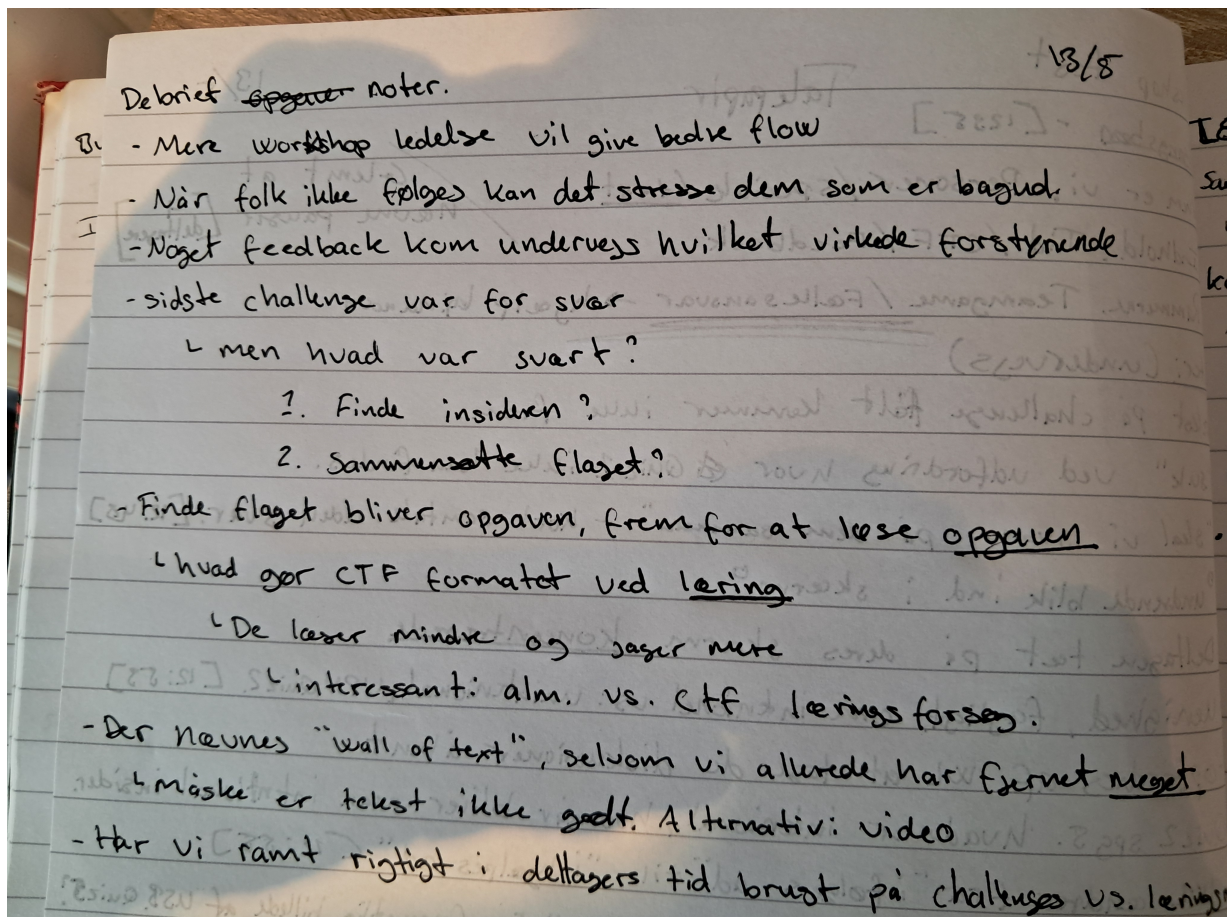 13/5
Debrief opgaver noter.
- Mere workshop ledelse vil give bedre flow
- Når folk ikke følges kan det stresse dem som er bagud.
- Noget feedback kom undervegs hvilket virkede forstyrrende
- sidste challenge var for svær
└ men hvad var svært?
1. Finde insideren?
2. Sammensætte flaget?
- Finde flaget bliver opgaven, frem for at læse opgaven
└ hvad gør CTF formatet ved læring
└ De læser mindre og jager mere
└ interessant: alm. vs. ctf læringsforsøg.
- Der nævnes "wall of text", selvom vi allerede har fjernet meget
└ måske er tekst ikke godt. Alternativ: video
- Har vi ramt rigtigt i deltagers tid brugt på challenges vs. læring